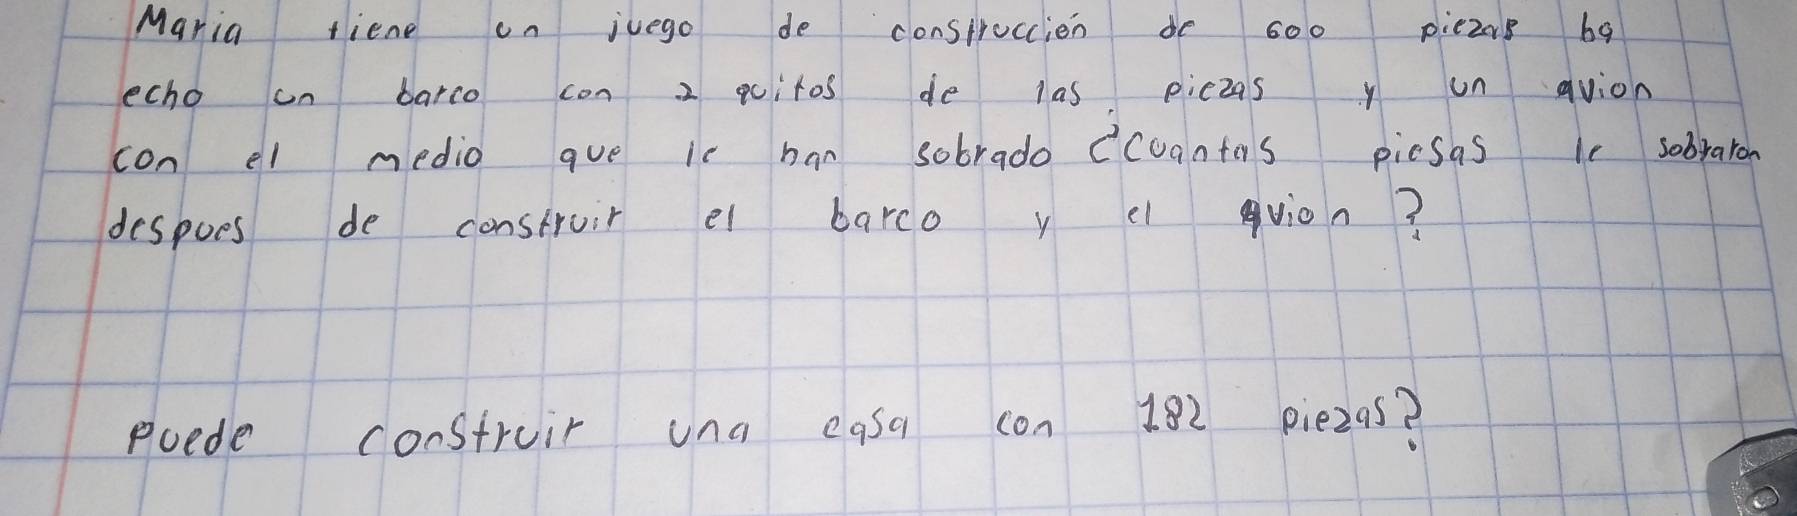 Maria tiene un juego de construcción de 600 piezas ha
echo un barco con 2 quitos de las piezas y un avion
con el medio que le han sobrado ¿Cuantas piesas le sobraron
despues de construir el barco y el avion?
puede construir una casa con 182 piezas?